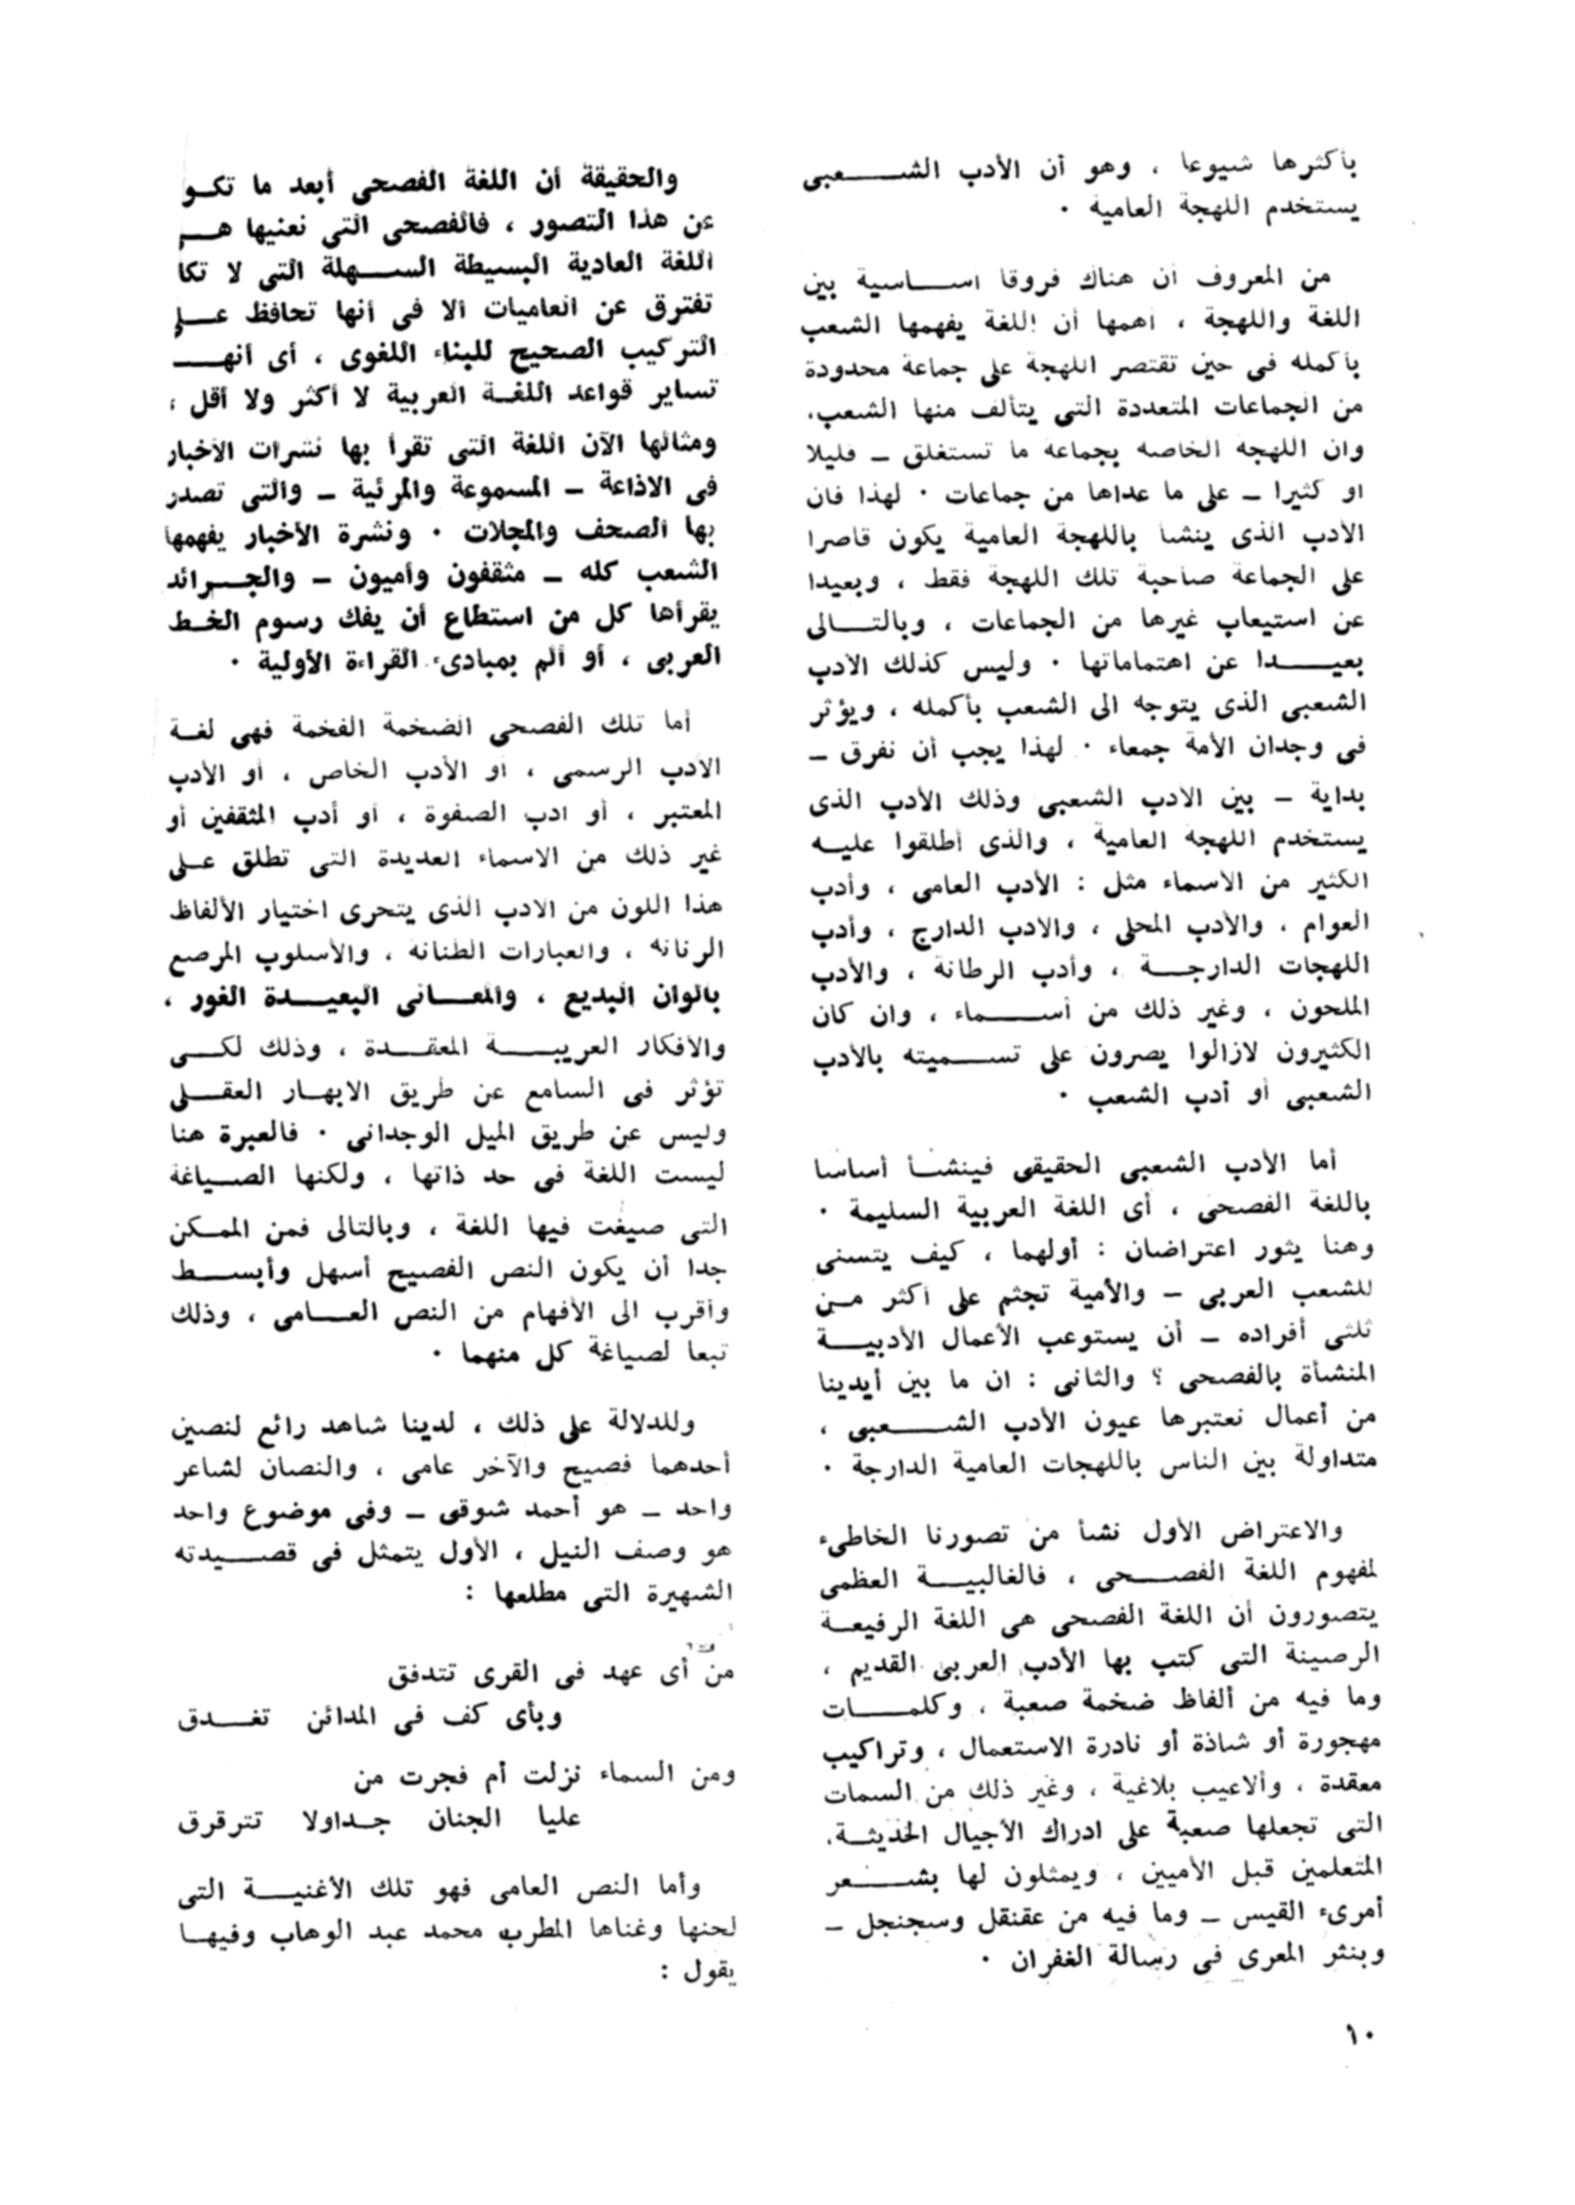 بأكثرها شيوعا ، وهو أن الأدب الشعبى
يستخدم اللهجة العامية .
من المعروف أن هناك فروقا أساسية بين
اللغة واللهجة ، أهمها أن اللغة يفهمها الشعب
بأكمله فى حين تقتصر اللهجة على جماعة محدودة
من الجماعات المتعددة التى يتألف منها الشعب،
وان اللهجة الخاصة بجماعة ما تستغلق – قليلا
او كثيرا – على ما عداها من جماعات . لهذا فان
الأدب الذى ينشأ باللهجة العامية يكون قاصرا
على الجماعة صاحبة تلك اللهجة فقط ، وبعيدا
عن استيعاب غيرها من الجماعات ، وبالتالى
بعيدا عن اهتماماتها . وليس كذلك الأدب
الشعبى الذى يتوجه الى الشعب بأكمله ، ويؤثر
فى وجدان الأمة جمعاء . لهذا يجب أن نفرق –
بداية – بين الادب الشعبى وذلك الأدب الذى
يستخدم اللهجة العامية ، والذى أطلقوا عليه
الكثير من الأسماء مثل : الأدب العامى ، وأدب
العوام ، والأدب المحلى ، والادب الدارج ، وأدب
اللهجات الدارجة ، وأدب الرطانة ، والأدب
الملحون ، وغير ذلك من أسماء ، وان كان
الكثيرون لازالوا يصرون على تسميته بالأدب
الشعبى أو أدب الشعب .
أما الأدب الشعبى الحقيقى فينشأ أساسا
باللغة الفصحى ، أى اللغة العربية السليمة .
وهنا يثور اعتراضان : أولهما ، كيف يتسنى
للشعب العربى – والأمية تجثم على أكثر من
ثلثى أفراده – أن يستوعب الأعمال الأدبية
المنشأة بالفصحى ؟ والثانى : ان ما بين أيدينا
من أعمال نعتبرها عيون الأدب الشعبى ،
متداولة بين الناس باللهجات العامية الدارجة .
والاعتراض الأول نشأ من تصورنا الخاطىء
لمفهوم اللغة الفصحى ، فالغالبية العظمى
يتصورون أن اللغة الفصحى هى اللغة الرفيعة
الرصينة التى كتب بها الأدب العربى القديم ،
وما فيه من ألفاظ ضخمة صعبة ، وكلمات
مهجورة أو شاذة أو نادرة الاستعمال ، وتراكيب
معقدة ، وألاعيب بلاغية ، وغير ذلك من السمات
التى تجعلها صعبة على ادراك الأجيال الحديثة،
المتعلمين قبل الأميين ، ويمثلون لها بشعر
أمرىء القيس – وما فيه من عقنقل وسجنجل –
وبنثر المعرى فى رسالة الغفران .
والحقيقة أن اللغة الفصحى أبعد ما تكو
عن هذا التصور ، فالفصحى التى نعنيها هى
اللغة العادية البسيطة السهلة التى لا تكا
تفترق عن العاميات الا فى أنها تحافظ على
التركيب الصحيح للبناء اللغوى ، أى أنها
تساير قواعد اللغة العربية لا أكثر ولا أقل ،
ومثالها الآن اللغة التى تقرأ بها نشرات الأخبار
فى الاذاعة – المسموعة والمرئية – والتى تصدر
بها الصحف والمجلات . ونشرة الأخبار يفهمها
الشعب كله – مثقفون وأميون – والجرائد
يقرأها كل من استطاع أن يفك رسوم الخط
العربى ، أو ألم بمبادىء القراءة الأولية .
أما تلك الفصحى الضخمة الفخمة فهى لغة
الأدب الرسمى ، أو الأدب الخاص ، أو الأدب
المعتبر ، أو ادب الصفوة ، أو أدب المثقفين أو
غير ذلك من الاسماء العديدة التى تطلق على
هذا اللون من الادب الذى يتحرى اختيار الألفاظ
الرنانة ، والعبارات الطنانة ، والأسلوب المرصع
بألوان البديع ، والمعانى البعيدة الغور ،
والأفكار الغريبة المعقدة ، وذلك لكى
تؤثر فى السامع عن طريق الابهار العقلى
وليس عن طريق الميل الوجدانى . فالعبرة هنا
ليست اللغة فى حد ذاتها ، ولكنها الصياغة
التى صيغت فيها اللغة ، وبالتالى فمن الممكن
جدا أن يكون النص الفصيح أسهل وأبسط
وأقرب الى الأفهام من النص العامى ، وذلك
تبعا لصياغة كل منهما .
وللدلالة على ذلك ، لدينا شاهد رائع لنصين
أحدهما فصيح والآخر عامى ، والنصان لشاعر
واحد – هو أحمد شوقى – وفى موضوع واحد
هو وصف النيل ، الأول يتمثل فى قصيدته
الشهيرة التى مطلعها :
من أى عهد فى القرى تتدفق
وبأى كف فى المدائن تغدق
ومن السماء نزلت أم فجرت من
عليا الجنان جداولا تترقرق
وأما النص العامى فهو تلك الأغنية التى
لحنها وغناها المطرب محمد عبد الوهاب وفيها
يقول :
١٠